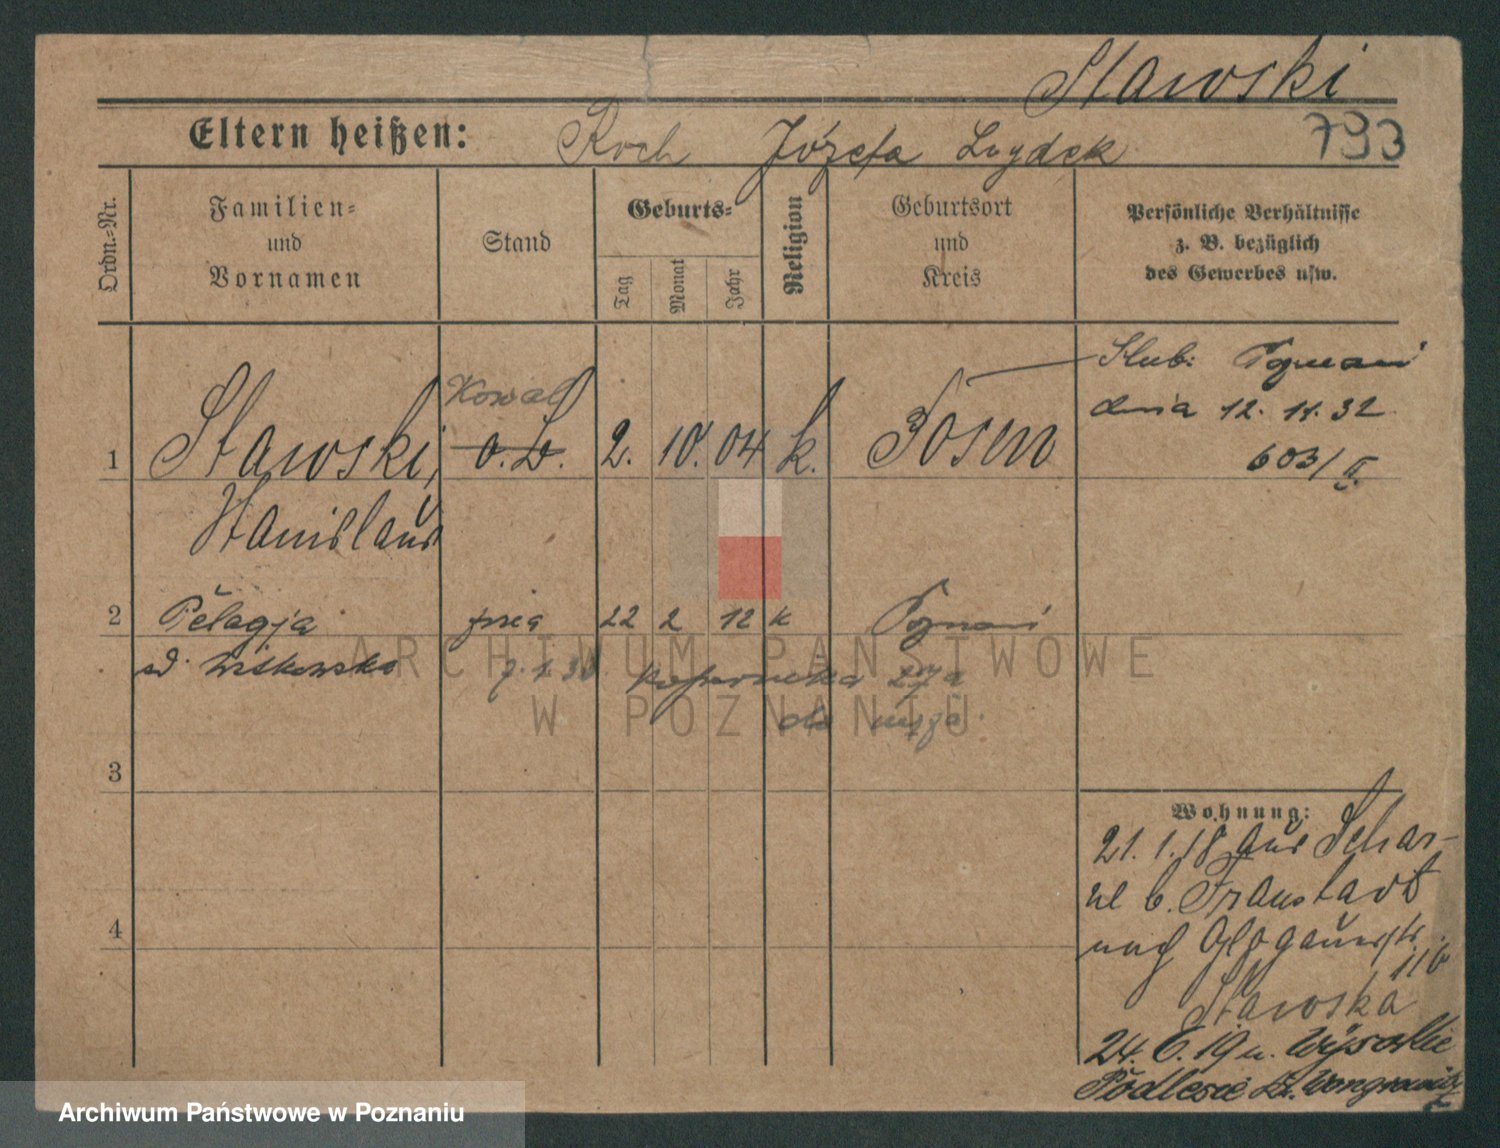 Stawski
Eltern heißen: Roch Józefa Lrydek
793
Ordn.-Nr.
Familien-
und
Vornamen
Stand
Geburts-
Tag
Monat
Jahr
Religion
Geburtsort
und
Kreis
Persönliche Verhältnisse
z. B. bezüglich
des Gewerbes usw.
1
Stawski,
Stanislaus
Kowal
o. B.
2. 10. 04 k.
Posen
Slub: Poznań
dnia 12.11.32
603/II.
2
Pelagja
Witkowska
22 2 12 k
Poznań
7.1.33 Kopernika
3
4
Wohnung:
21.1.18 aus Schar-
ne b. Fraustadt
nach Glogauerstr.
116
Stawska
24.6.19 n. Wysokie
Podlesie Kr. Wongrowitz
ARCHIWUM PAŃSTWOWE
W POZNANIU
Archiwum Państwowe w Poznaniu